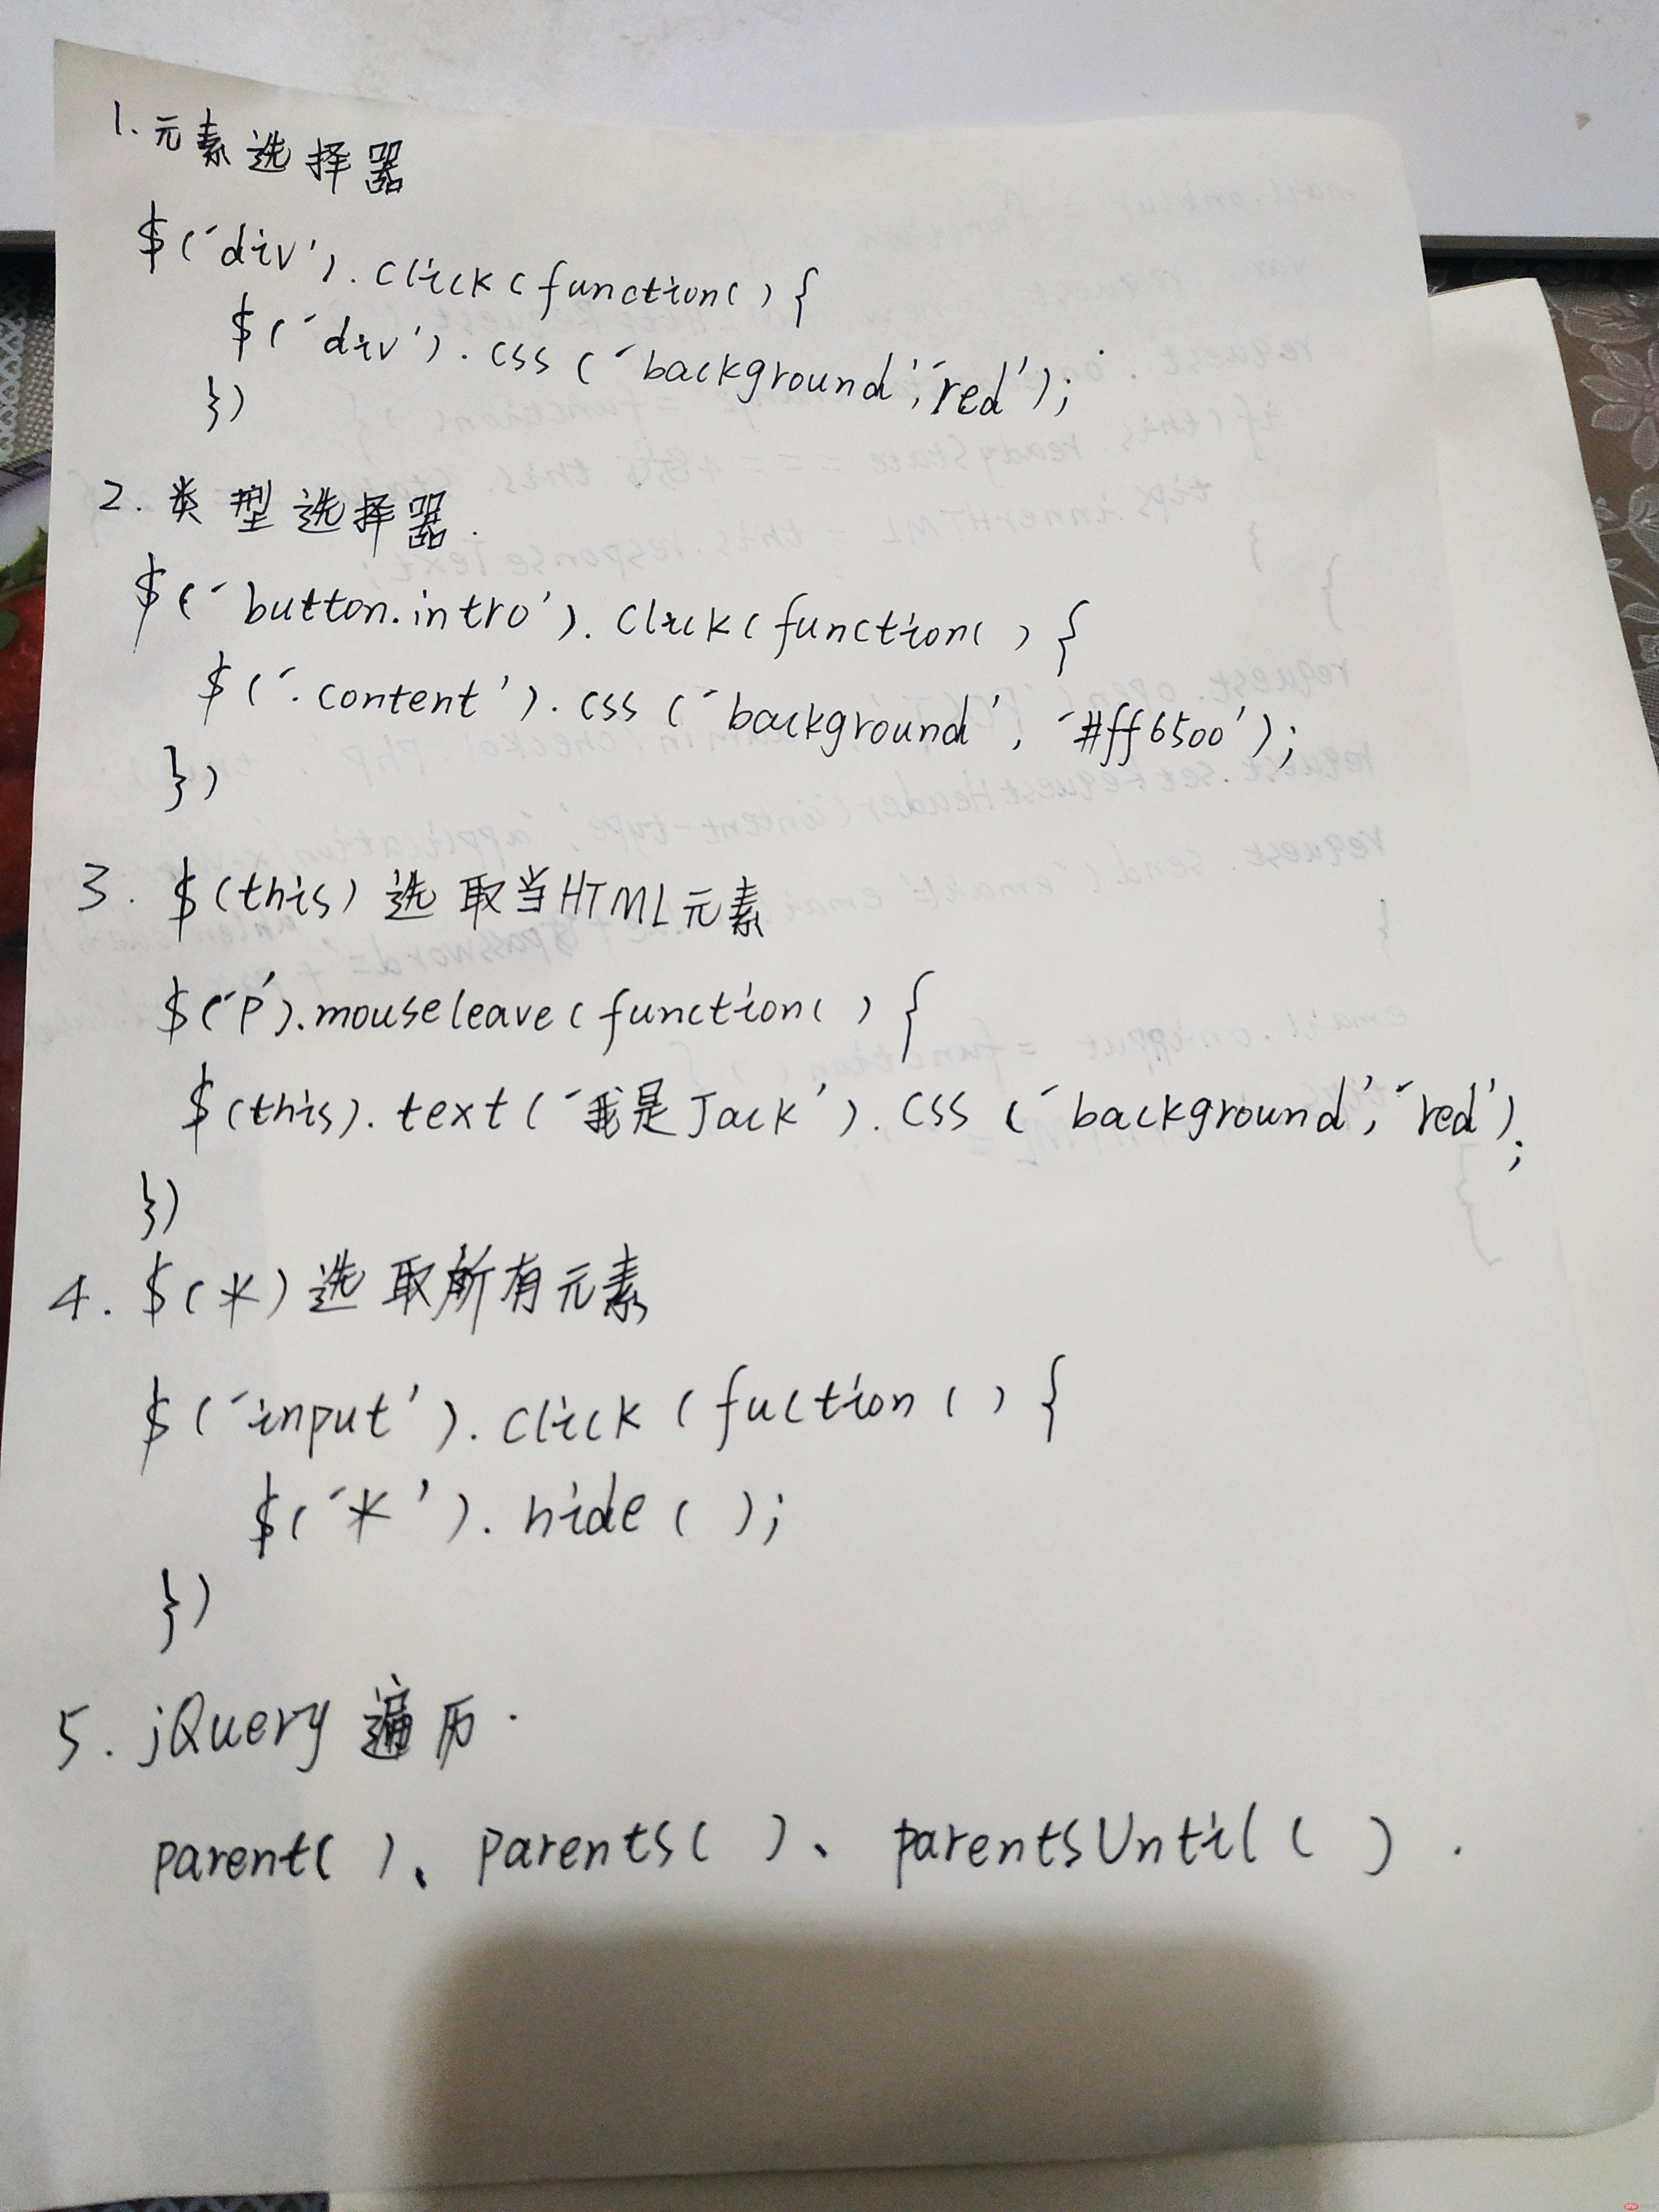 1. 元素选择器
$('div').click(function(){
$('div').css('background','red');
})
2. 类型选择器.
$('button.intro').click(function(){
$('.content').css('background','#ff6500');
})
3. $(this)选取当HTML元素
$('p').mouseleave(function(){
$(this).text('我是Jack').css('background','red');
})
4. $(*)选取所有元素
$('input').click(fuction(){
$('*').hide();
})
5. jQuery遍历.
parent()、parents()、parentsUntil().
php